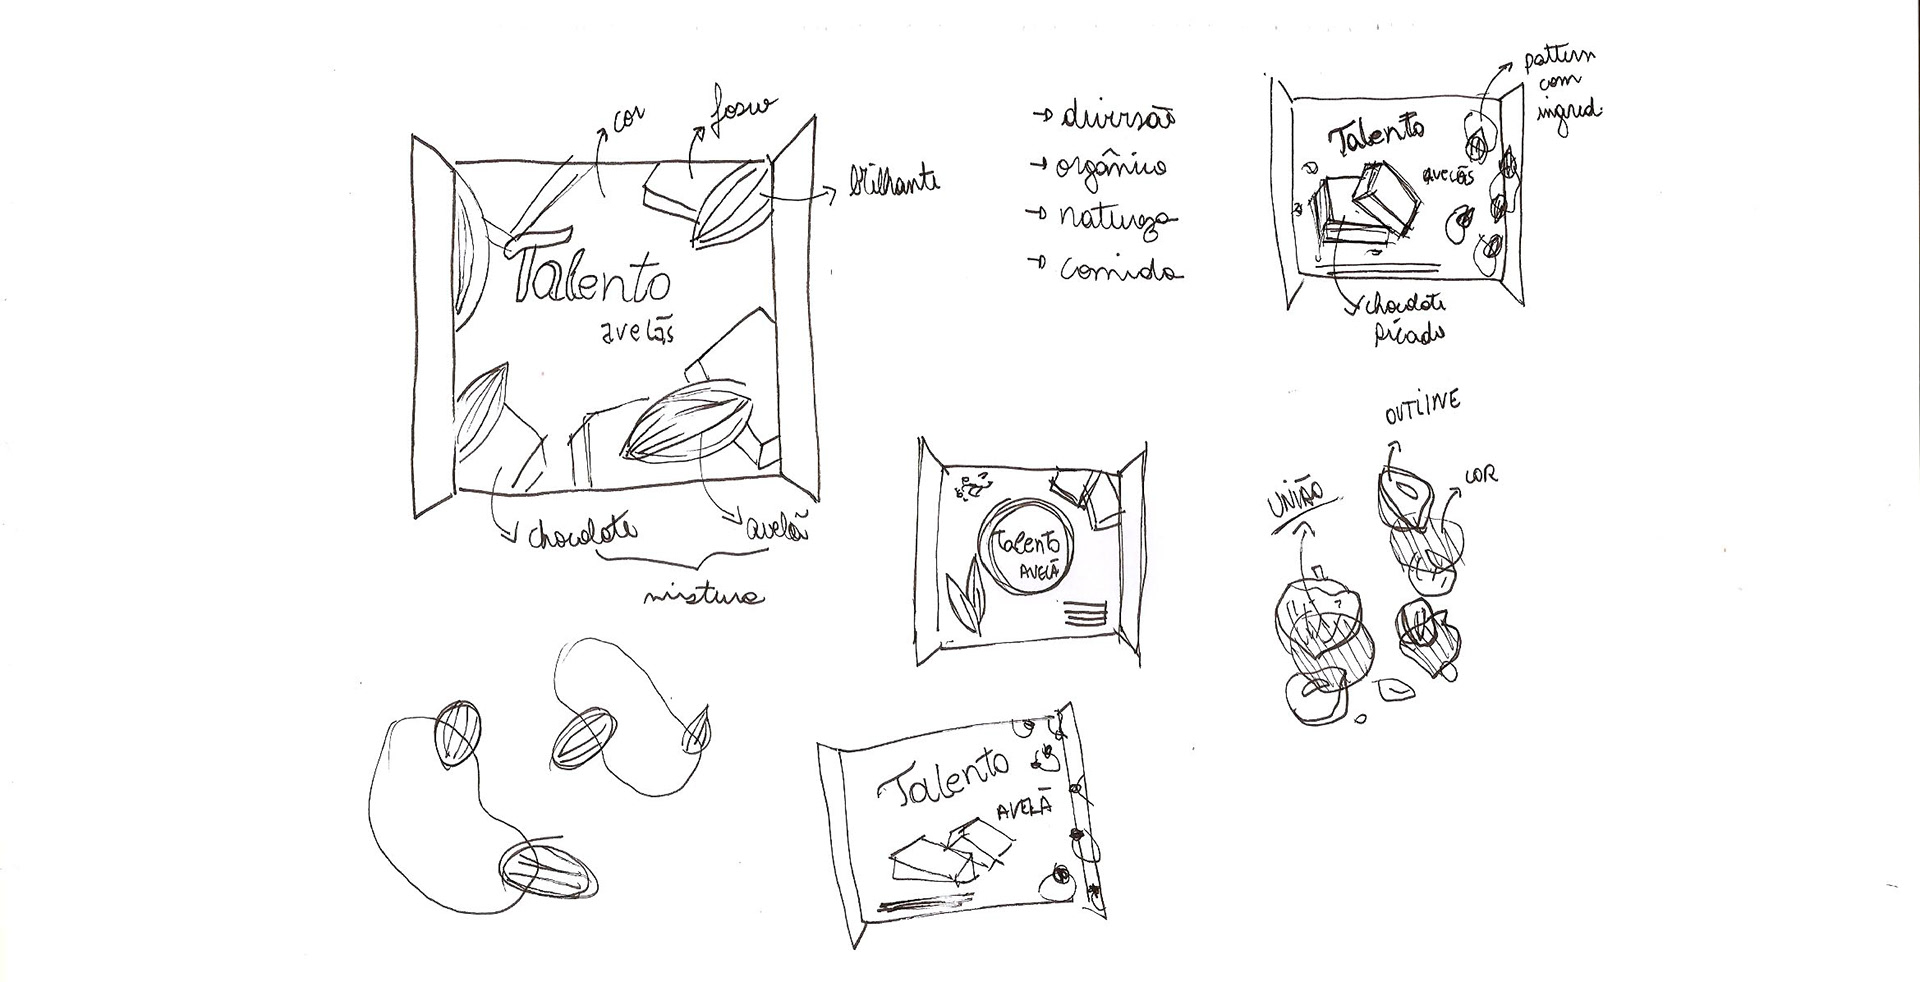 cor
fosco
brilhante
Talento
avelãs
chocolate
avelã
mistura
→ diversão
→ orgânico
→ natureza
→ comida
pattern
com
ingred.
Talento
avelãs
chocolate
picado
Talento
AVELÃ
OUTLINE
COR
UNIÃO
Talento
AVELÃ